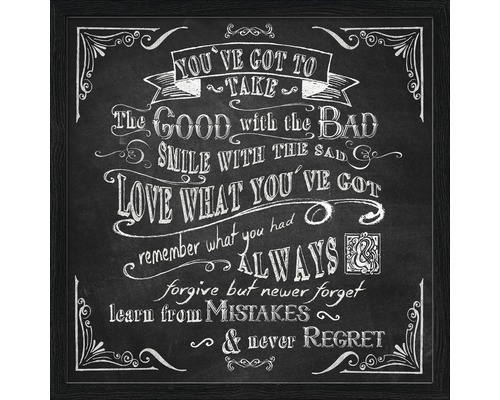 YOU'VE GOT TO
TAKE
The GOOD with the BAD
SMILE WITH THE SAD
LOVE WHAT YOU'VE GOT
remember what you had
ALWAYS &
forgive but newer forget
learn from MISTAKES
& never REGRET